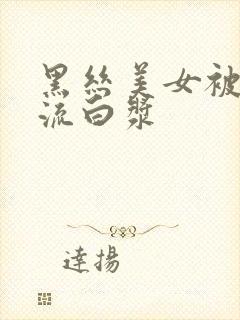 黑丝美女被
流白漿
達揚